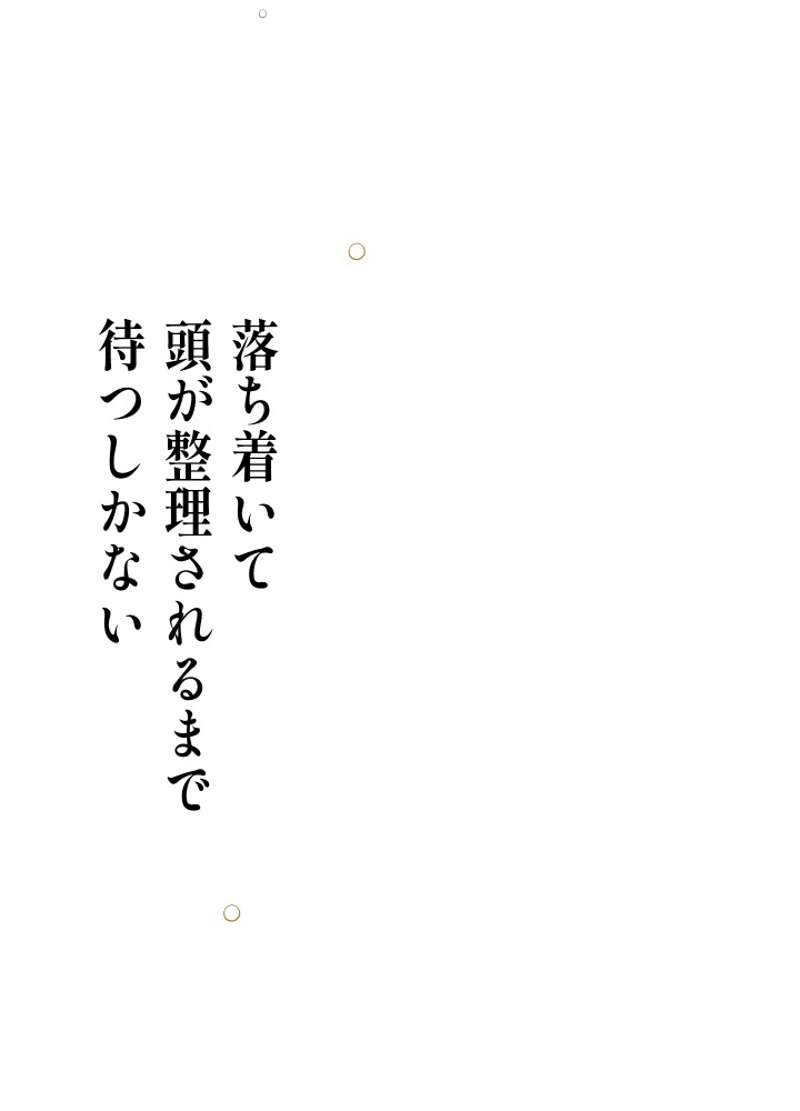 落ち着いて
頭が整理されるまで
待つしかない